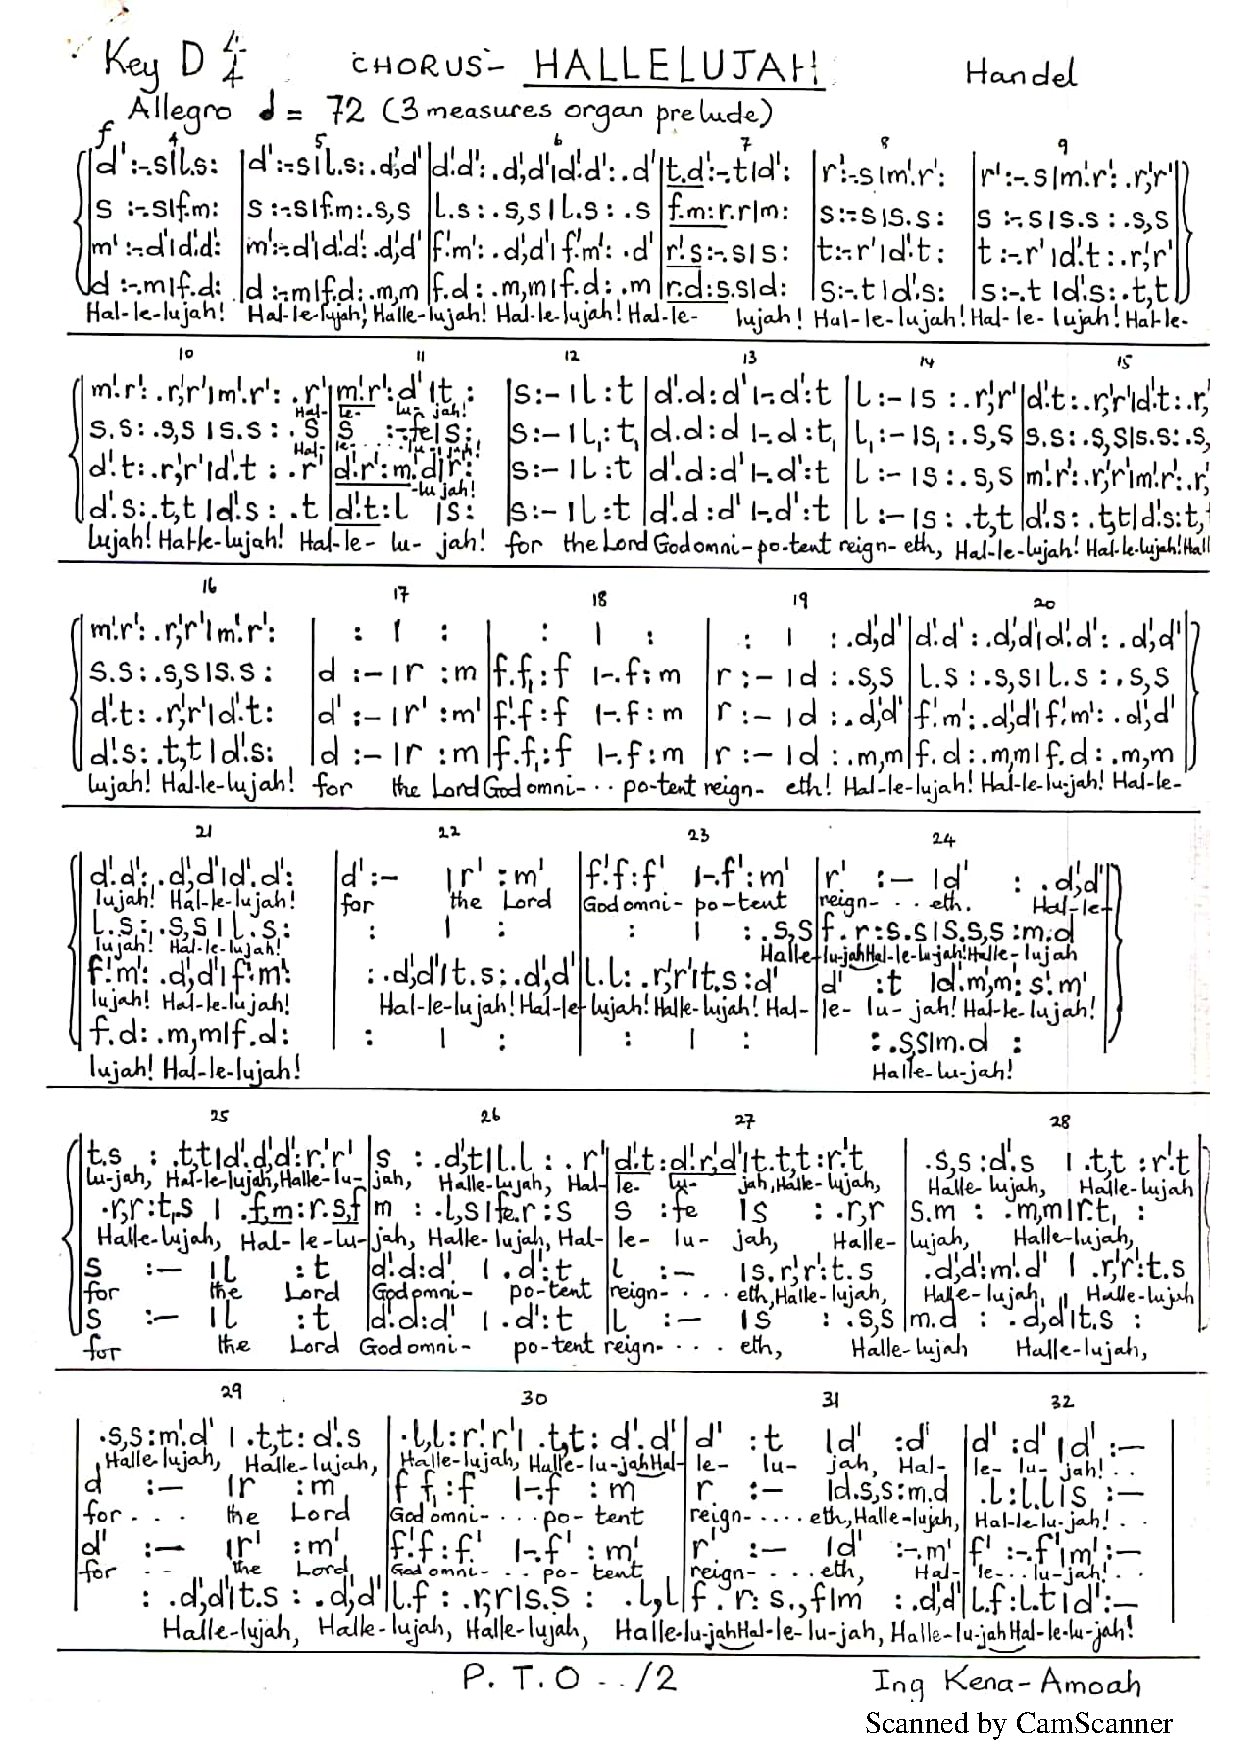 Key D 4/4 CHORUS- HALLELUJAH Handel
Allegro 𝅗𝅥 = 72 (3 measures organ prelude)
f 4 5 6 7 8 9
d':-.s|l.s: |d':-.s|l.s:.d',d'|d'.d':.d',d'|d'.d':.d'|t.d':-.t|d': |r':-.s|m'.r': |r':-.s|m'.r':.r',r'|
s:-.s|f.m: |s:-.s|f.m:.s,s|l.s:.s,s|l.s:.s|f.m:r.r|m: |s:-.s|s.s: |s:-.s|s.s:.s,s|
m':-.d'|d'.d': |m':-.d'|d'.d':.d',d'|f'.m':.d',d'|f'.m':.d'|r'.s:-.s|s: |t:-.r'|d'.t: |t:-.r'|d'.t:.r',r'|
d:-.m|f.d: |d:-.m|f.d:.m,m|f.d:.m,m|f.d:.m|r.d:s.s|d: |s:-.t|d'.s: |s:-.t|d'.s:.t,t|
Hal-le-lujah! Hal-le-lujah, Halle-lujah! Hal-le-lujah! Hal-le- lujah! Hal-le-lujah! Hal-le-lujah! Hal-le-
10 11 12 13 14 15
m'.r':.r',r'|m'.r':.r'|m'.r':d'|t: |s:-|l:t|d'.d:d'|-.d':t|l:-|s:.r',r'|d'.t:.r',r'|d'.t:.r',
Hal- le- lu- jah!
s.s:.s,s|s.s:.s|s:-.fe|s: |s:-|l,:t,|d.d:d|-.d:t,|l,:-|s,:.s,s|s.s:.s,s|s.s:.s,
Hal- le- lu- jah!
d'.t:.r',r'|d'.t:.r'|d'.r':m'.d'|r': |s:-|l:t|d'.d:d'|-.d':t|l:-|s:.s,s|m'.r':.r',r'|m'.r':.r',
-lu jah!
d'.s:.t,t|d'.s:.t|d'.t:l|s: |s:-|l:t|d'.d:d'|-.d':t|l:-|s:.t,t|d'.s:.t,t|d's:t,
lujah! Hal-le-lujah! Hal-le- lu- jah! for the Lord God omni-po-tent reign-eth, Hal-le-lujah! Hal-le-lujah! Hall
16 17 18 19 20
m'.r':.r',r'|m'.r': | : | : | : | : | : | :.d',d'|d'.d':.d',d'|d'.d':.d',d'|
s.s:.s,s|s.s: |d:-|r:m|f.f,:f|-.f:m|r:-|d:.s,s|l.s:.s,s|l.s:.s,s|
d'.t:.r',r'|d'.t: |d':-|r':m'|f'.f:f|-.f:m|r:-|d:.d',d'|f'.m':.d',d'|f'.m':.d',d'|
d'.s:.t,t|d'.s: |d:-|r:m|f.f,:f|-.f:m|r:-|d:.m,m|f.d:.m,m|f.d:.m,m|
lujah! Hal-le-lujah! for the Lord God omni- · · po-tent reign- eth! Hal-le-lujah! Hal-le-lu-jah! Hal-le-
21 22 23 24
d'.d':.d',d'|d'.d': |d':-|r':m'|f'.f:f'|-.f':m'|r':-|d':.d',d'|
lujah! Hal-le-lujah! for the Lord God omni- po-tent reign- · · · eth. Hal-le-
l.s:.s,s|l.s: | : | : | : | :.s,s|f.r:s.s|s.s,s:m.d
lujah! Hal-le-lujah! Halle-lu-jah Hal-le-lujah! Halle-lujah
f'.m':.d',d'|f'.m': | :.d',d'|t.s:.d',d'|l.l:.r',r'|t.s:d'|d':t|d'.m',m':s'.m'
lujah! Hal-le-lujah! Hal-le-lujah! Hal-le-lujah! Halle-lujah! Hal- le- lu- jah! Hal-le-lujah!
f.d:.m,m|f.d: | : | : | : | : | :.s,s|m.d:
lujah! Hal-le-lujah! Halle-lu-jah!
25 26 27 28
t.s:.t,t|d'.d',d':r'.r'|s:.d',t|l.l:.r'|d'.t:d'.r',d'|t.t,t:r'.t|.s,s:d'.s|.t,t:r'.t
lu-jah, Hal-le-lujah, Halle-lu-jah, Halle-lujah, Hal- le- lu- jah, Halle-lujah, Halle-lujah, Halle-lujah
.r,r:t,.s|.f,m:r.s,f|m:.l,s|fe.r:s|s:fe|s:.r,r|s.m:.m,m|r.t,:
Halle-lujah, Hal-le-lu-jah, Halle-lujah, Hal- le- lu- jah, Halle- lujah, Halle-lujah,
s:-|l:t|d'.d:d'|.d':t|l:-|s.r',r':t.s|.d',d':m'.d'|.r',r':t.s
for the Lord God omni- po-tent reign- · · · eth, Halle-lujah, Halle-lujah, Halle-lujah
s:-|l:t|d'.d:d'|.d':t|l:-|s:.s,s|m.d:.d,d|t.s:
for the Lord God omni- po-tent reign- · · · eth, Halle-lujah Halle-lujah,
29 30 31 32
.s,s:m'.d'|.t,t:d'.s|.l,l:r'.r'|.t,t:d'.d'|d':t|d':d'|d':d'|d':-
Halle-lujah, Halle-lujah, Halle-lujah, Halle-lu-jah Hal- le- lu- jah, Hal- le- lu- jah! · ·
d:-|r:m|f.f,:f|-.f:m|r:-|d.s,s:m.d|.l:l.l|s:-
for · · · the Lord God omni- · · · po-tent reign- · · · · eth, Halle-lujah, Hal-le-lu-jah! · ·
d':-|r':m'|f'.f:f'|-.f':m'|r':-|d':-.m'|f':-.f'|m':-
for · · the Lord God omni- · · · po-tent reign- · · · · eth, Hal- le- · · lu-jah! · ·
:.d',d'|t.s:.d',d'|l.f:.r,r|s.s:.l,l|f.r:s.,f|m:.d',d'|l.f:l.t|d':-
Halle-lujah, Halle-lujah, Halle-lujah, Halle-lu-jah Hal-le-lu-jah, Halle-lu-jah Hal-le-lu-jah!
P.T.O - ../2 Ing Kena-Amoah
Scanned by CamScanner